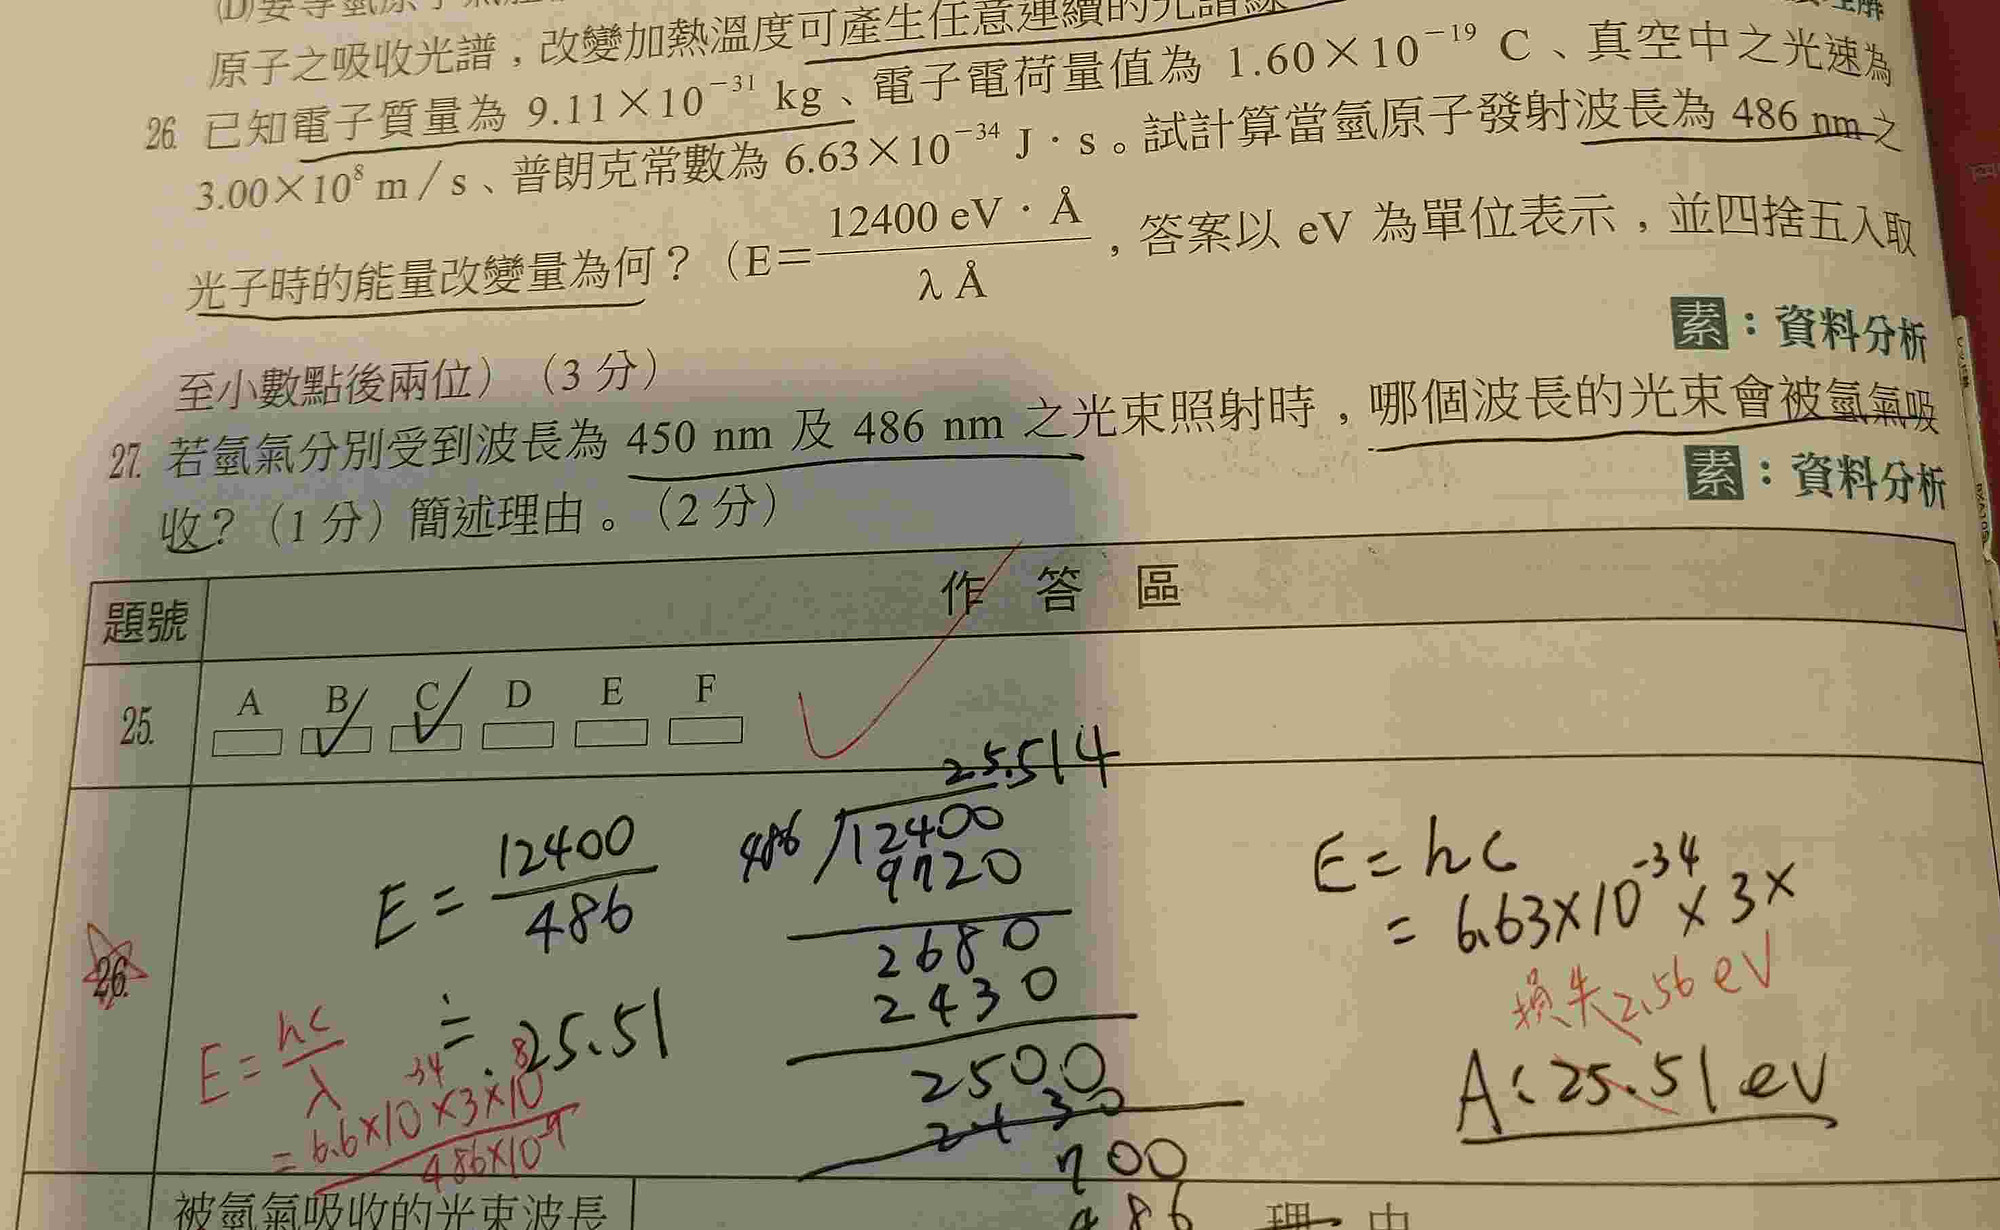 原子之吸收光譜，改變加熱溫度可產生任意連續的光譜線
26. 已知電子質量為 9.11×10⁻³¹ kg、電子電荷量值為 1.60×10⁻¹⁹ C、真空中之光速為
3.00×10⁸ m／s、普朗克常數為 6.63×10⁻³⁴ J．s。試計算當氫原子發射波長為 486 nm 之
光子時的能量改變量為何？（E＝12400 eV．Å / λ Å，答案以 eV 為單位表示，並四捨五入取
至小數點後兩位）（3 分）
素：資料分析
27. 若氫氣分別受到波長為 450 nm 及 486 nm 之光束照射時，哪個波長的光束會被氫氣吸
收？（1 分）簡述理由。（2 分）
素：資料分析
題號
作 答 區
25.
A B C D E F
26.
E = 12400 / 486
≒ 25.51
25.514
486 12400
9720
2680
2430
2500
2430
700
486
E = hc
= 6.63×10⁻³⁴ × 3×
損失2.56 eV
A：25.51 eV
E = hc / λ
= 6.6×10⁻³⁴×3×10⁸ / 486×10⁻⁹
被氫氣吸收的光束波長
理 由